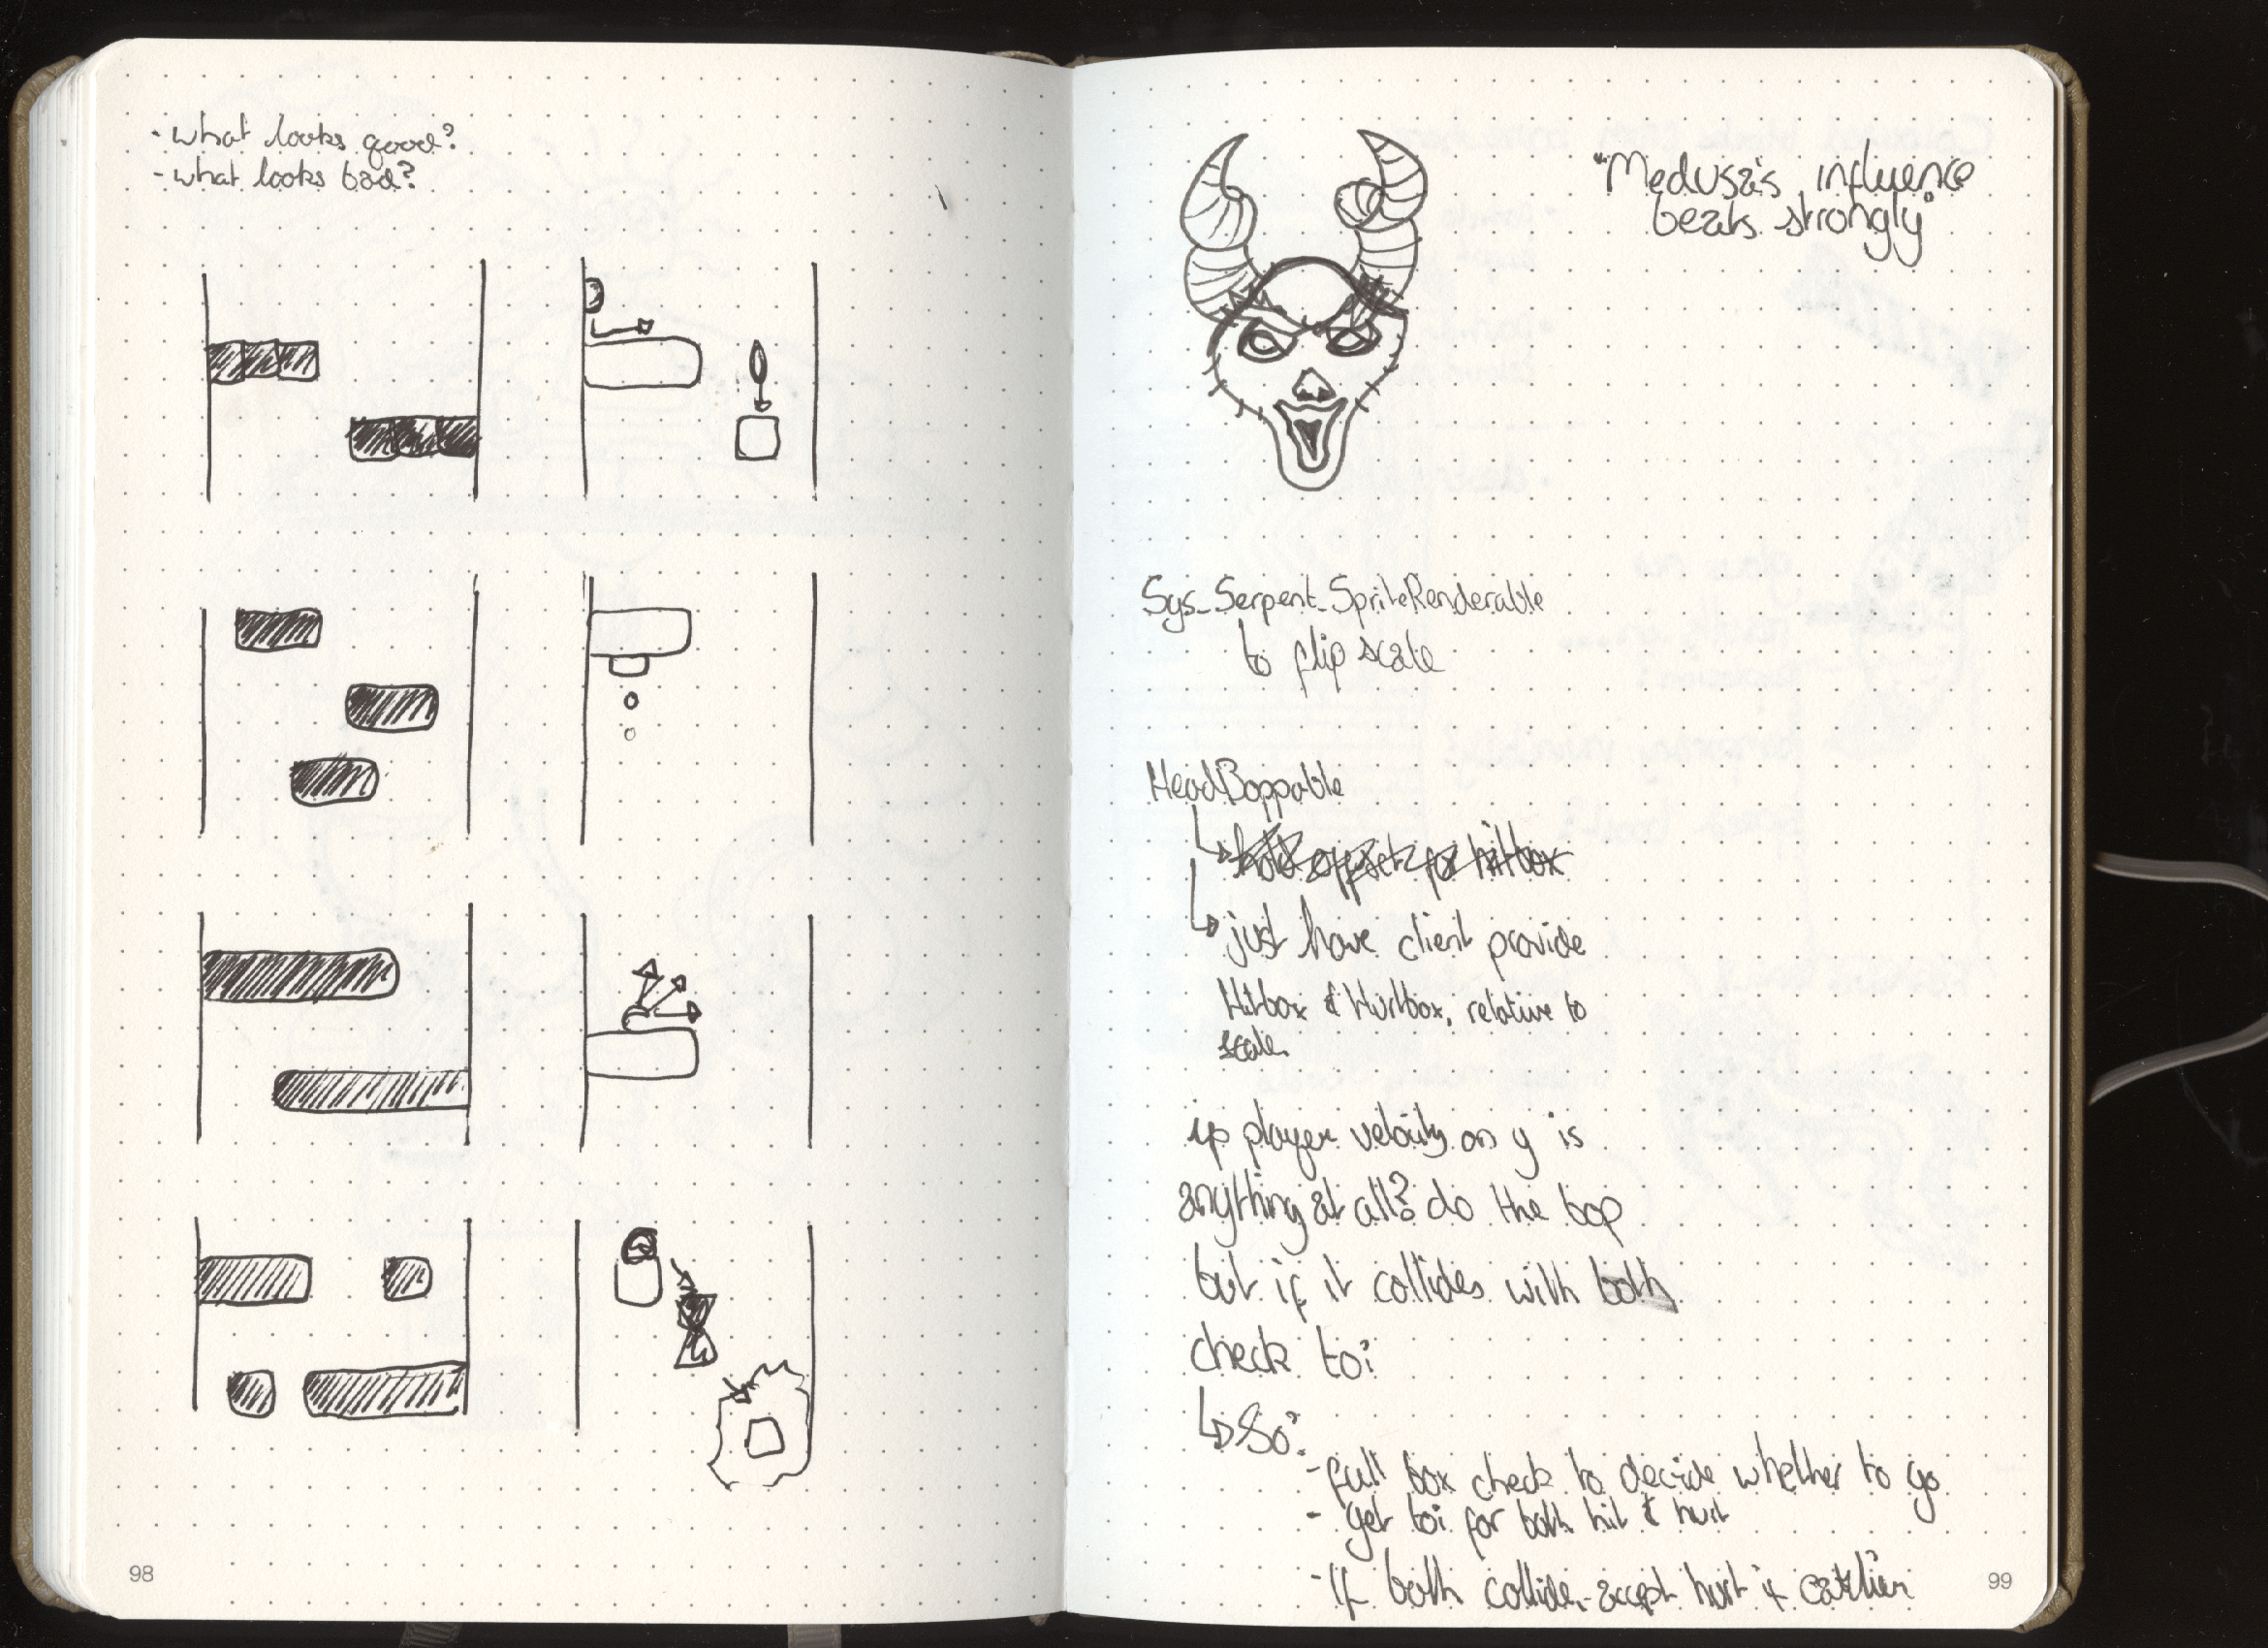 - what looks good?
- what looks bad?
98
"Medusa's influence
beats strongly"
Sys_Serpent_SpriteRenderable
to flip scale
HeadBoppable
hold offset for hitbox
just have client provide
Hitbox & Hurtbox, relative to
scale
if player velocity on y is
anything at all? do the bop
but if it collides with both
check toi
So:
- full box check to decide whether to go
- get toi for both hit & hurt
- If both collide, accept hurt if earlier
99